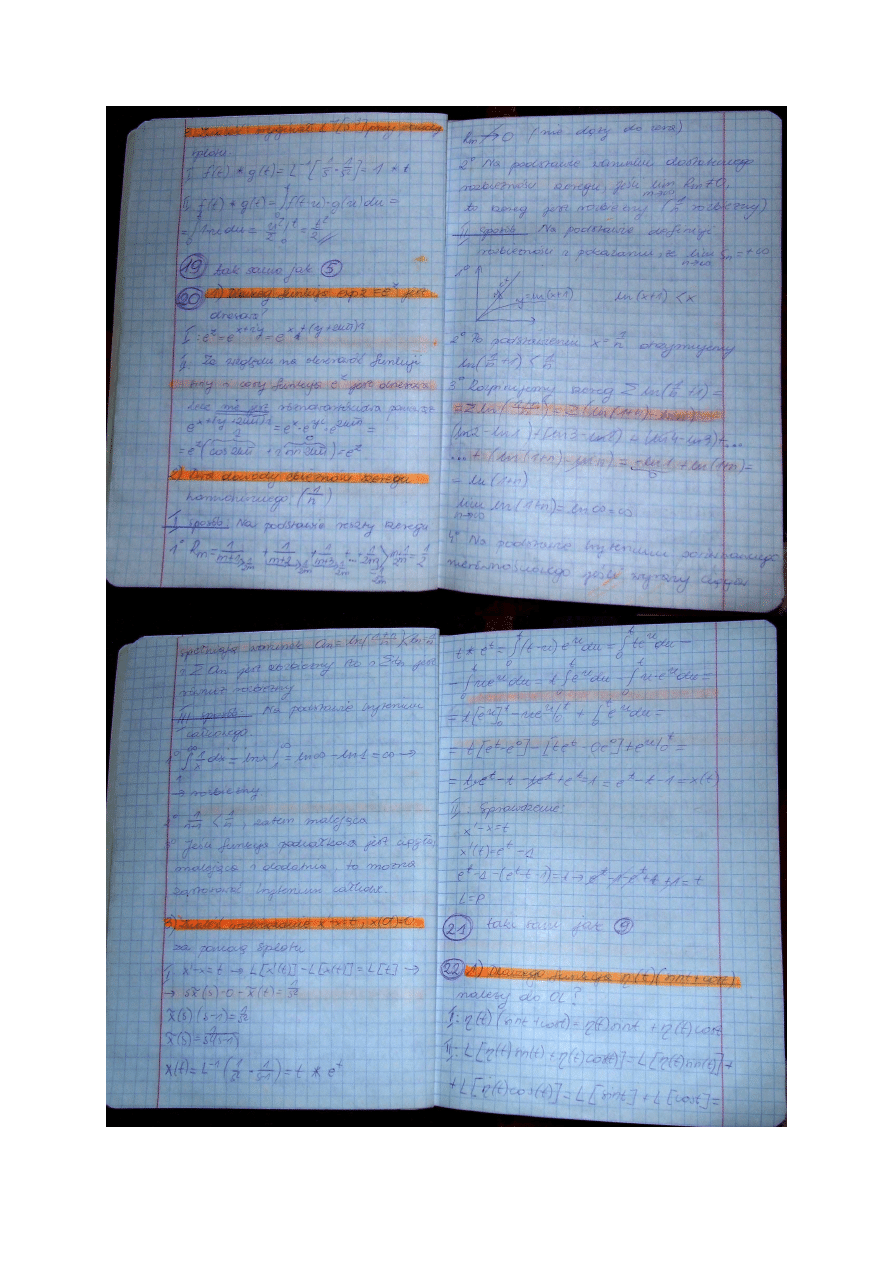 3) Znaleźć oryginał L⁻¹(1/s³) przy pomocy
splotu.
I. f(t) * g(t) = L⁻¹[1/s · 1/s²] = 1 * t
II. f(t) * g(t) = ∫₀ᵗ f(t-u)·g(u)du =
= ∫₀ᵗ 1·u du = u²/2 |₀ᵗ = t²/2
19 tak samo jak 5
20 1) Dlaczego funkcja exp z = eᶻ jest
okresowa?
I: eᶻ = e^(x+iy) = e^(x+(y+2kπ)i)
II: Ze względu na okresowość funkcji
eᶻ jest okresowa
więc nie jest różnowartościowa ponieważ
= eᶻ(cos2kπ + i sin2kπ) = eᶻ
2) Dwa dowody zbieżności szeregu
harmonicznego (1/n)
I sposób: Na podstawie reszty szeregu
1° Rm = 1/(m+1) + 1/(m+2) + 1/(m+3) + ... + 1/2m > m·1/2m = 1/2
Rm ↛ 0 (nie dąży do zera)
2° Na podstawie warunku dostatecznego
rozbieżności szeregu, jeśli lim m→∞ Rm ≠ 0,
to szereg jest rozbieżny (1/n rozbieżny)
II sposób: Na podstawie definicji
rozbieżności i pokazaniu, że lim n→∞ Sn = +∞
1° y=ln(x+1) ln(x+1) < x
2° Po podstawieniu x = 1/n otrzymujemy
ln(1/n + 1) < 1/n
3° Rozpisujemy szereg Σ ln(1/n + 1) =
= Σ ln((1+n)/n) = Σ (ln(1+n) - ln n) =
(ln2 - ln1) + (ln3 - ln2) + (ln4 - ln3) + ...
... + (ln(1+n) - ln n) = -ln 1 + ln(1+n) =
= ln(1+n)
lim n→∞ ln(1+n) = ln ∞ = ∞
4° Na podstawie kryterium porównawczego
jeżeli wyrazy ciągu
spełniają warunek An = ln((1+n)/n) < Bn = 1/n
i Σ An jest rozbieżny to i Σ Bn jest
również rozbieżny
III sposób: Na podstawie kryterium
całkowego.
1° ∫₁^∞ 1/x dx = ln x |₁^∞ = ln∞ - ln1 = ∞ →
→ rozbieżny
, zatem malejąca
3° Jeśli funkcja podcałkowa jest ciągła,
malejąca i dodatnia, to można
zastosować kryterium całkowe.
3) Znaleźć rozwiązanie x'-x=t, x(0)=0
za pomocą splotu
I x'-x = t → L[x'(t)] - L[x(t)] = L[t] →
→ sx̄(s) - 0 - x̄(t) = 1/s²
x̄(s)(s-1) = 1/s²
x̄(s) = 1/(s²(s-1))
x(t) = L⁻¹(1/s² · 1/(s-1)) = t * eᵗ
t * eᵗ = ∫₀ᵗ (t-u) eᵘ du = ∫₀ᵗ teᵘ du -
- ∫₀ᵗ ueᵘ du = t∫₀ᵗ eᵘ du - ∫₀ᵗ u·eᵘ du =
= t[eᵘ]₀ᵗ - ueᵘ|₀ᵗ + ∫₀ᵗ eᵘ du =
= t[eᵗ - e⁰] - [teᵗ - 0e⁰] + eᵘ|₀ᵗ =
= teᵗ - t - teᵗ + eᵗ - 1 = eᵗ - t - 1 = x(t)
II: Sprawdzenie:
x'-x=t
x'(t)=eᵗ-1
eᵗ - 1 - (eᵗ - t - 1) = t → eᵗ - 1 - eᵗ + t + 1 = t
L=P
21 taki sam jak 9
22 1) Dlaczego funkcja η(t)(sint+cost)
należy do OL?
I: η(t)(sint+cost) = η(t)sint + η(t)cost
II: L[η(t)sin(t) + η(t)cos(t)] = L[η(t)sin(t)] +
+ L[η(t)cos(t)] = L[sint] + L[cost] =